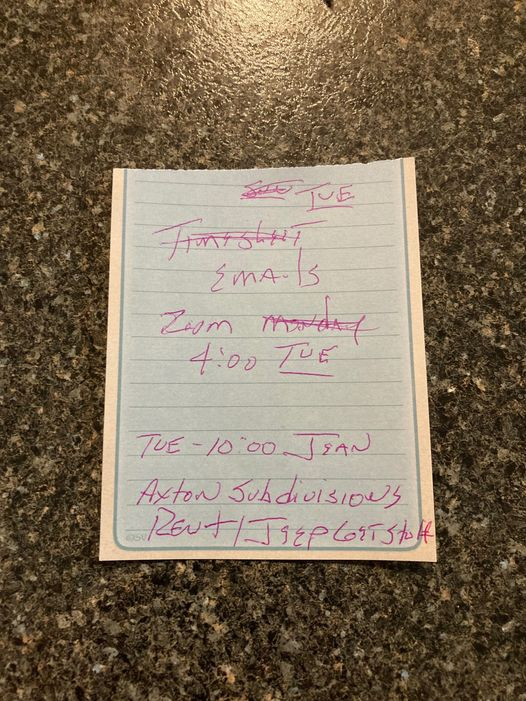 TUE
Timesheet
EMAils
Zoom Monday
4:00 TUE
TUE - 10:00 JEAN
Axton Subdivisions
RENT / JEEP Get Stuff